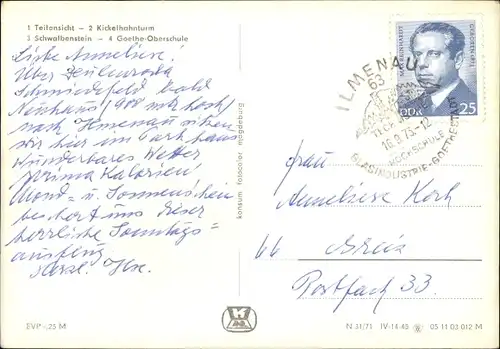 1 Teilansicht – 2 Kickelhahnturm
3 Schwalbenstein – 4 Goethe-Oberschule
Liebe Anneliese!
Über Zeulenroda
Schmiedefeld bald
Neuhaus/900 mtr hoch/
nach Ilmenau sitzen
wir hier im Parkhaus
Wunderbares Wetter
prima Kalorien
Mond- u. Sonnenschein
beschert uns dieser
herrliche Sonntags=
ausflug
Herzl. Ilse.
EVP -,25 M
konsum fotocolor magdeburg
K
MAX REINHARDT
DDR
25
ILMENAU
63
16.9.73-12
HOCHSCHULE
GLASINDUSTRIE-GOETHESTADT
Frau
Anneliese Koch
66 Greiz
Postfach 33.
N 31/71 IV-14-45 05 11 03 012 M